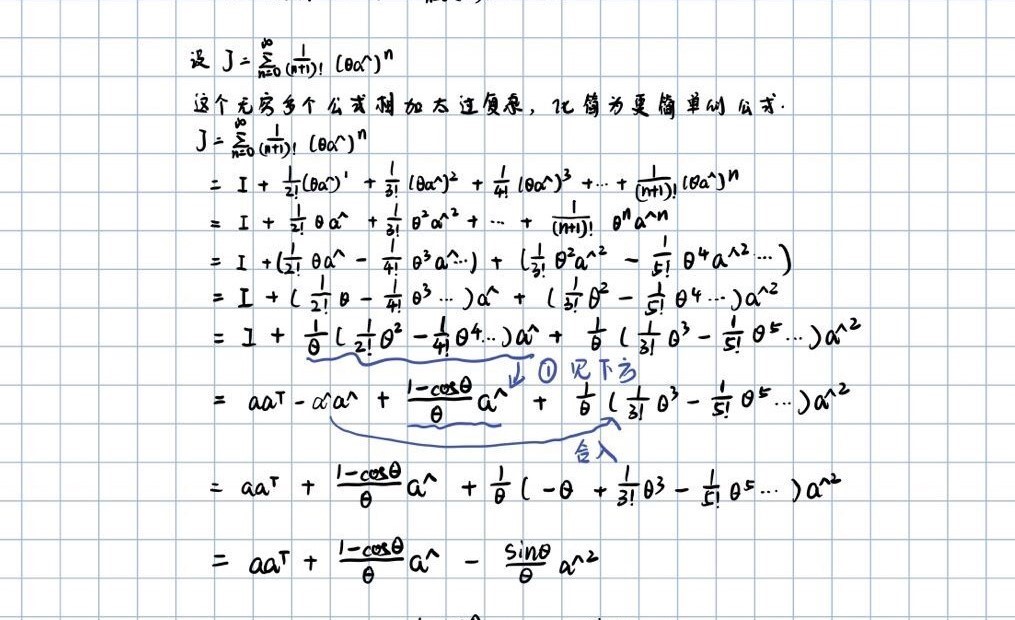 设 J = ∑_{n=0}^{∞} \frac{1}{(n+1)!} (θa^)^n
这个无穷多个公式相加太过复杂，化简为更简单的公式.
J = ∑_{n=0}^{∞} \frac{1}{(n+1)!} (θa^)^n
= I + \frac{1}{2!}(θa^)^1 + \frac{1}{3!}(θa^)^2 + \frac{1}{4!}(θa^)^3 + ... + \frac{1}{(n+1)!}(θa^)^n
= I + \frac{1}{2!} θa^ + \frac{1}{3!} θ^2 a^^2 + ... + \frac{1}{(n+1)!} θ^n a^^n
= I + (\frac{1}{2!} θa^ - \frac{1}{4!} θ^3 a^...) + (\frac{1}{3!} θ^2 a^^2 - \frac{1}{5!} θ^4 a^^2 ...)
= I + (\frac{1}{2!} θ - \frac{1}{4!} θ^3 ...) a^ + (\frac{1}{3!} θ^2 - \frac{1}{5!} θ^4 ...) a^^2
= I + \frac{1}{θ} (\frac{1}{2!} θ^2 - \frac{1}{4!} θ^4 ...) a^ + \frac{1}{θ} (\frac{1}{3!} θ^3 - \frac{1}{5!} θ^5 ...) a^^2
① 见下方
= aa^T - a^a^ + \frac{1-cosθ}{θ} a^ + \frac{1}{θ} (\frac{1}{3!} θ^3 - \frac{1}{5!} θ^5 ...) a^^2
合入
= aa^T + \frac{1-cosθ}{θ} a^ + \frac{1}{θ} (-θ + \frac{1}{3!} θ^3 - \frac{1}{5!} θ^5 ...) a^^2
= aa^T + \frac{1-cosθ}{θ} a^ - \frac{sinθ}{θ} a^^2